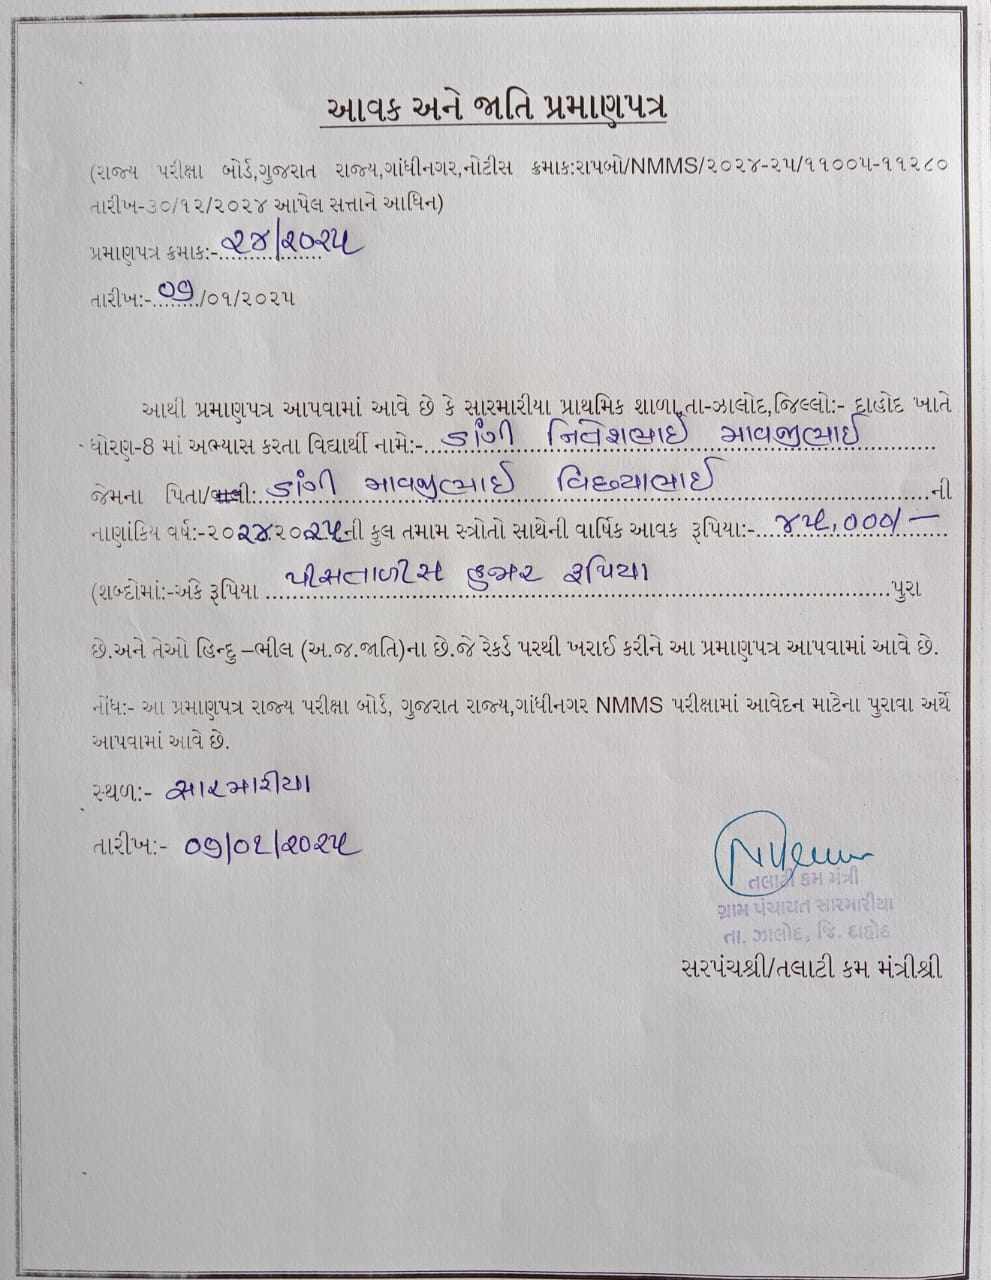 આવક અને જાતિ પ્રમાણપત્ર
(રાજ્ય પરીક્ષા બોર્ડ,ગુજરાત રાજ્ય,ગાંધીનગર,નોટીસ ક્રમાક:રાપબો/NMMS/૨૦૨૪-૨૫/૧૧૦૦૫-૧૧૨૮૦
તારીખ-૩૦/૧૨/૨૦૨૪ આપેલ સત્તાને આધિન)
પ્રમાણપત્ર ક્રમાક:-૨૪/૨૦૨૫
તારીખ:-૦૭/૦૧/૨૦૨૫
આથી પ્રમાણપત્ર આપવામાં આવે છે કે સારમારીયા પ્રાથમિક શાળા,તા-ઝાલોદ,જિલ્લો:- દાહોદ ખાતે
ધોરણ-8 માં અભ્યાસ કરતા વિદ્યાર્થી નામે:- ડાંગી નિલેશભાઈ માવજીભાઈ
જેમના પિતા/વાલી: ડાંગી માવજીભાઈ વિછ્યાભાઈ ની
નાણાંકિય વર્ષ:-૨૦૨૪૨૦૨૫ની કુલ તમામ સ્ત્રોતો સાથેની વાર્ષિક આવક રૂપિયા:- ૪૫,૦૦૦/-
(શબ્દોમાં:-અંકે રૂપિયા પીસતાળીસ હજાર રૂપિયા પુરા
છે.અને તેઓ હિન્દુ –ભીલ (અ.જ.જાતિ)ના છે.જે રેકર્ડ પરથી ખરાઈ કરીને આ પ્રમાણપત્ર આપવામાં આવે છે.
નોંધ:- આ પ્રમાણપત્ર રાજ્ય પરીક્ષા બોર્ડ, ગુજરાત રાજ્ય,ગાંધીનગર NMMS પરીક્ષામાં આવેદન માટેના પુરાવા અર્થે
આપવામાં આવે છે.
સ્થળ:- સારમારીયા
તારીખ:- ૦૭/૦૧/૨૦૨૫
તલાટી કમ મંત્રી
ગ્રામ પંચાયત સારમારીયા
તા. ઝાલોદ, જિ. દાહોદ
સરપંચશ્રી/તલાટી કમ મંત્રીશ્રી